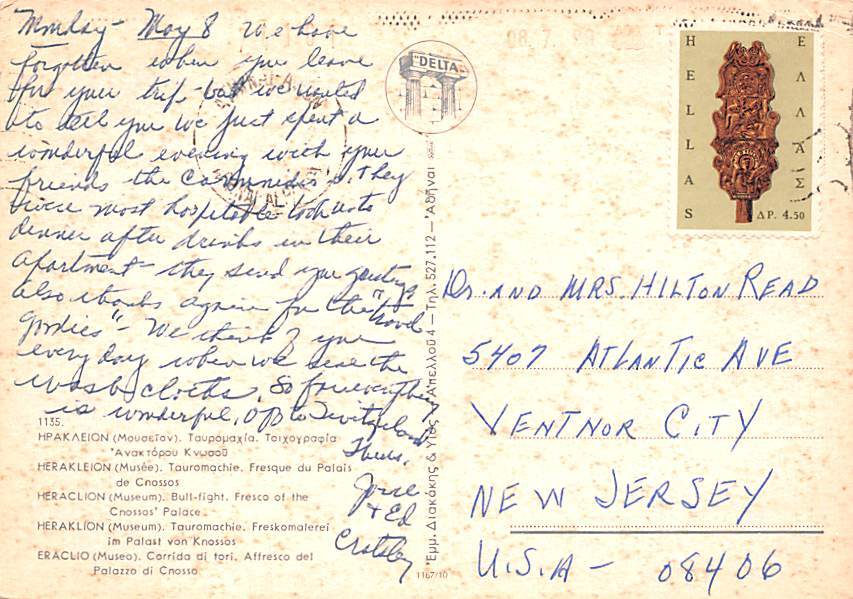 Monday - May 8 We have
forgotten when you leave
for your trip - but we wanted
to tell you we just spent a
wonderful evening with your
friends the They
were most hospitable took us to
dinner after drinks in their
apartment - they send you greetings
also thanks again for the "travel
goodies" - We think of you
every day when we use the
wash cloths. So far everything
is wonderful. Off to Switzerland
Thurs.
& Ed
Crosby
"DELTA"
HELLAS
ΕΛΛΑΣ
ΔΡ. 4.50
Dr. AND MRS. HILTON READ
5407 ATLANTIC AVE
VENTNOR CITY
NEW JERSEY
U.S.A - 08406
1135.
ΗΡΑΚΛΕΙΟΝ (Μουσεῖον). Ταυρομαχία. Τοιχογραφία
Ἀνακτόρου Κνωσοῦ
HERAKLEION (Musée). Tauromachie. Fresque du Palais
de Cnossos
HERACLION (Museum). Bull-fight. Fresco of the
Cnossos' Palace.
HERAKLION (Museum). Tauromachie. Freskomalerei
im Palast von Knossos
ERACLIO (Museo). Corrida di tori. Affresco del
Palazzo di Cnosso
Ἐμμ. Διακάκης & Υἱὸς Ἀπελλοῦ 4 — Τηλ. 527.112 — Ἀθῆναι
1167/10